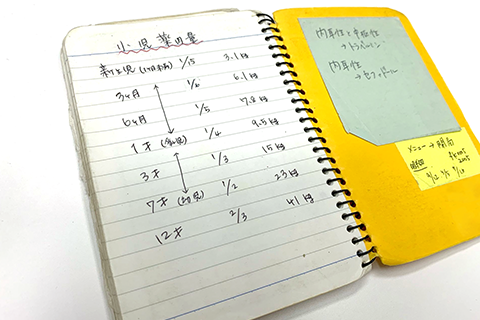 小児薬用量
新生児 (1ヶ月未満) 1/15 3.1kg
3ヶ月 1/6 6.1kg
6ヶ月 1/5 7.8kg
1才 (乳児) 1/4 9.5kg
3才 1/3 15kg
7才 (幼児) 1/2 23kg
12才 2/3 41kg
内耳性と中枢性
→トラベルミン
内耳性
→セファドール
メニュー→開局